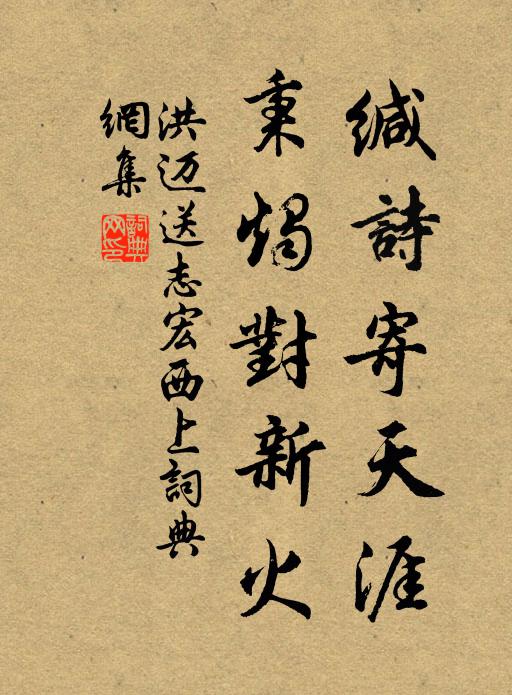 缄詩寄天涯
秉燭對新火
洪迈送志宏西上詞典
網集
詞典网印